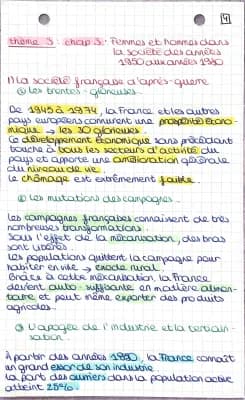 4
thème 3 : chap 3 : Femmes et hommes dans
la société des années
1950 aux années 1980
I) La société française d'après-guerre
① les trentes-glorieuses
De 1945 à 1974, la France et les autres
pays européens connurent une prospérité écono-
mique → les 30 glorieuses.
Ce développement économique sans précédent
touche à tous les secteurs d'activité du
pays et apporte une amélioration générale
du niveau de vie.
Le chômage est extrêmement faible.
② Les mutations des campagnes
Les campagnes françaises connaissent de très
nombreuses transformations.
Sous l'effet de la mécanisation, des bras
sont libérés.
Les populations quittent la campagne pour
habiter en ville → exode rural.
Grâce à cette mécanisation, la France
devient auto-suffisante en matière alimen-
taire et peut même exporter des produits
agricoles.
③ L'apogée de l'industrie et la tertiairi-
sation.
À partir des années 1950, la France connaît
un grand essor de son industrie.
La part des ouvriers dans la population active
atteint 25%.